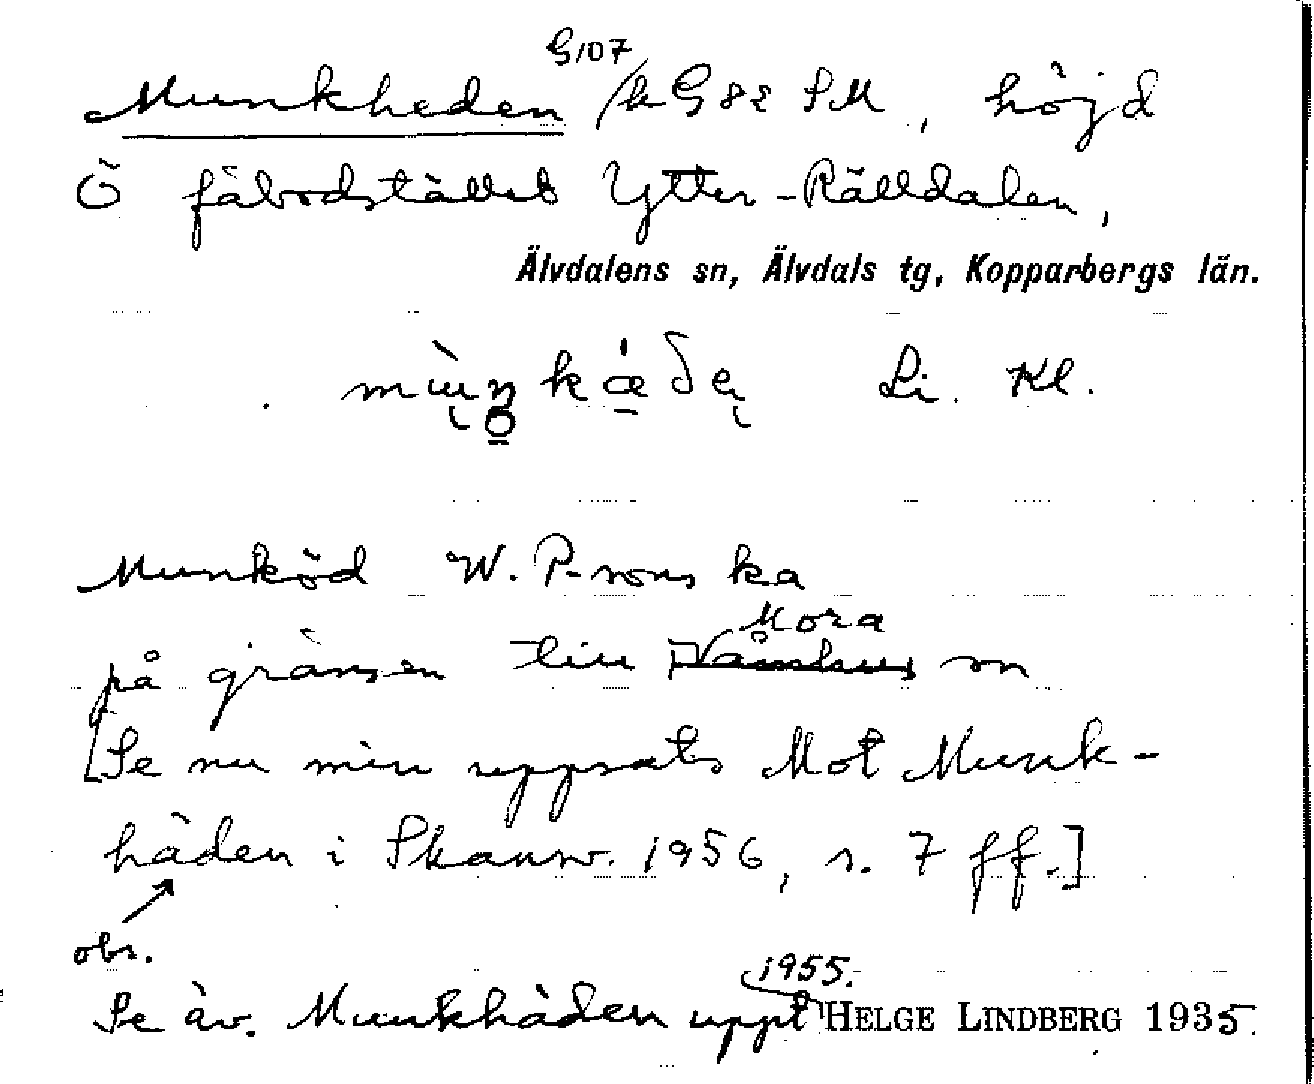 G107
Munkheden /k G 82 SM, höjd
Ö fäbodstället Ytter-Rälldalen,
Älvdalens sn, Älvdals tg, Kopparbergs län.
Li. Kl.
Munköd W. P-sons ka
Mora
på gränsen till Våmhus sn
[Se nu min uppsats Mot Munk-
häden i Skansv. 1956, s. 7 ff.]
obs.
1955.
Se äv. Munkhäden uppt HELGE LINDBERG 1935.